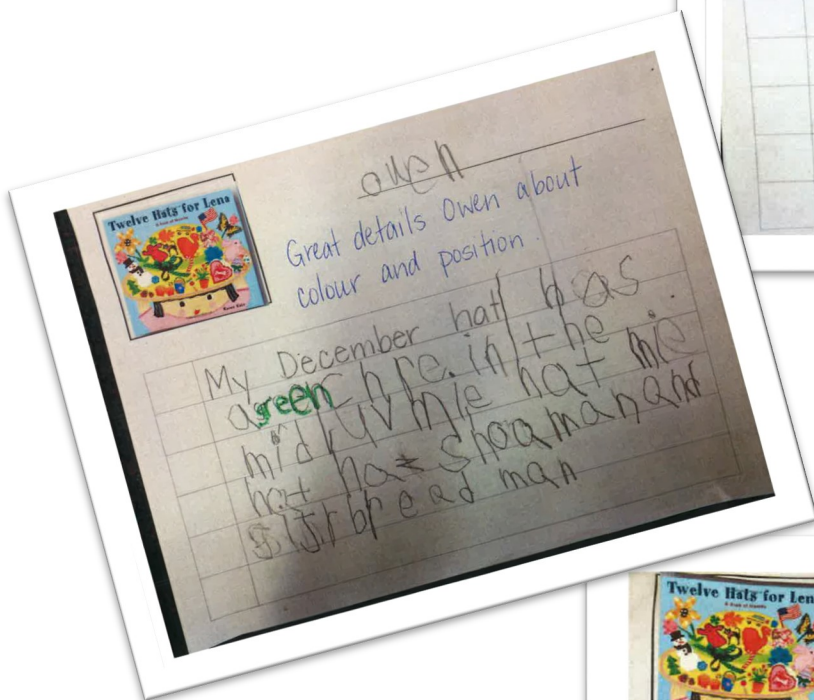 owen
Twelve Hats for Lena
Great details Owen about
colour and position.
My December hat has
a green chre. in the
mid uv mie hat mie
hat has shoaman and
bread man
Twelve Hats for Len